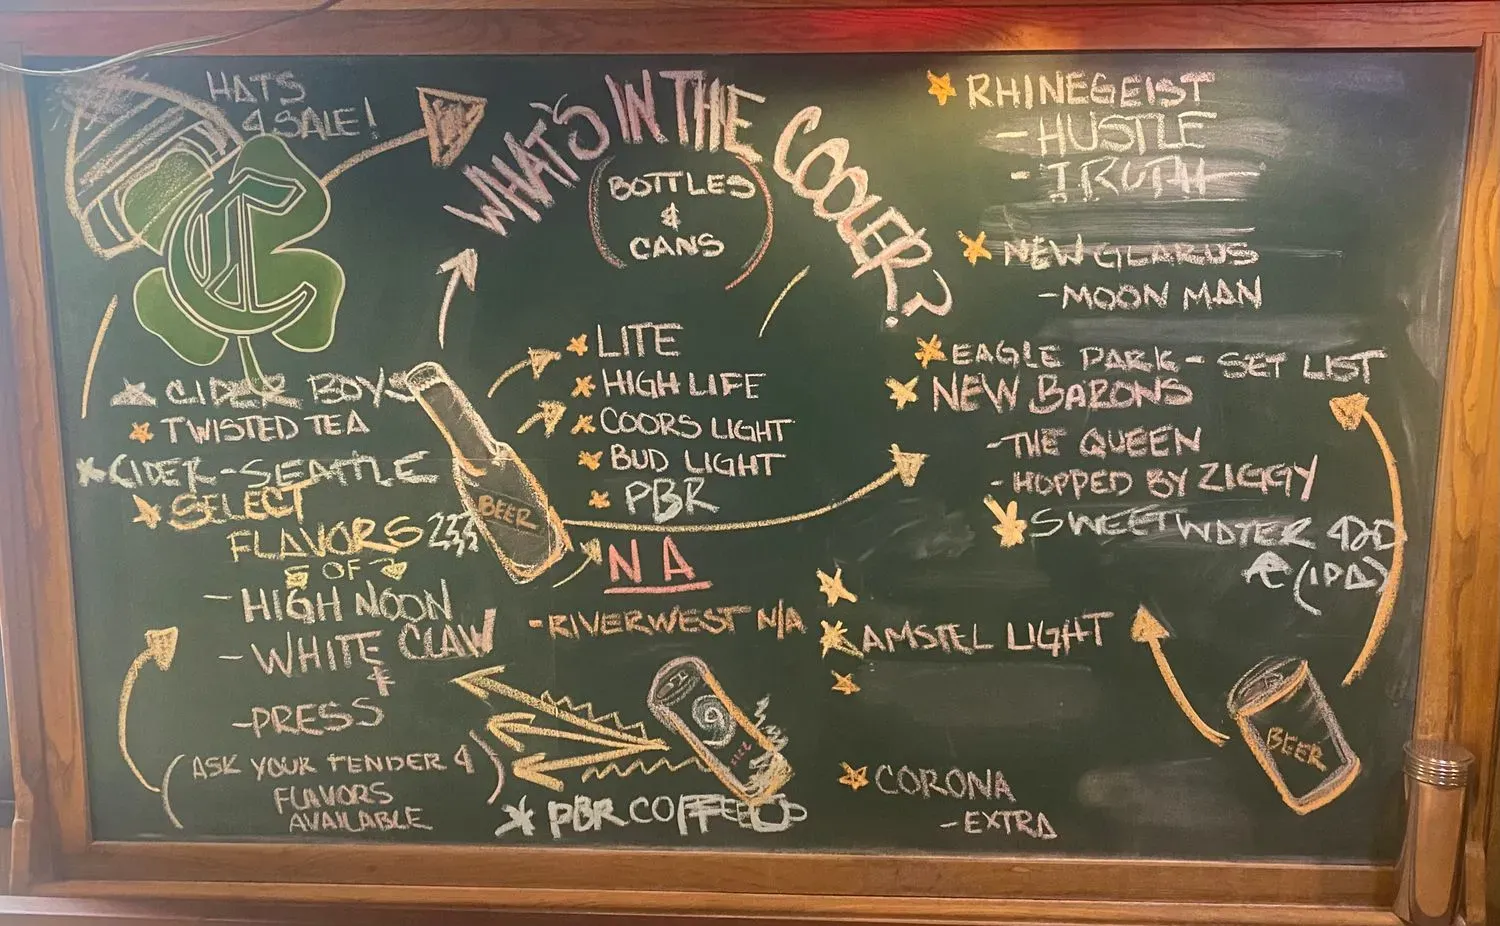 HATS
4 SALE!
C
WHAT'S IN THE COOLER?
(BOTTLES
&
CANS)
CIDER BOYS
TWISTED TEA
CIDER - SEATTLE
SELECT
FLAVORS
OF
- HIGH NOON
- WHITE CLAW
&
- PRESS
(ASK YOUR TENDER 4
FLAVORS
AVAILABLE)
BEER
LITE
HIGH LIFE
COORS LIGHT
BUD LIGHT
PBR
NA
- RIVERWEST N/A
9
PBR COFFEE
RHINEGEIST
- HUSTLE
- TRUTH
NEW GLARUS
- MOON MAN
EAGLE PARK - SET LIST
NEW BARONS
- THE QUEEN
- HOPPED BY ZIGGY
SWEETWATER 420
(IPA)
AMSTEL LIGHT
CORONA
- EXTRA
BEER